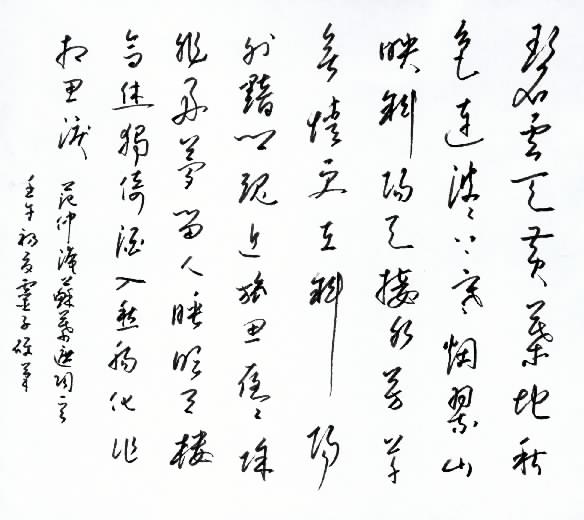 碧雲天黄葉地秋
色連波〻上寒烟翠山
映斜陽天接水芳草
無情更在斜陽
外黯鄉魂追旅思夜〻除
非好夢留人睡明月樓
高休獨倚酒入愁腸化作
相思淚 范仲淹蘇幕遮詞
壬午初夏靈子硬筆